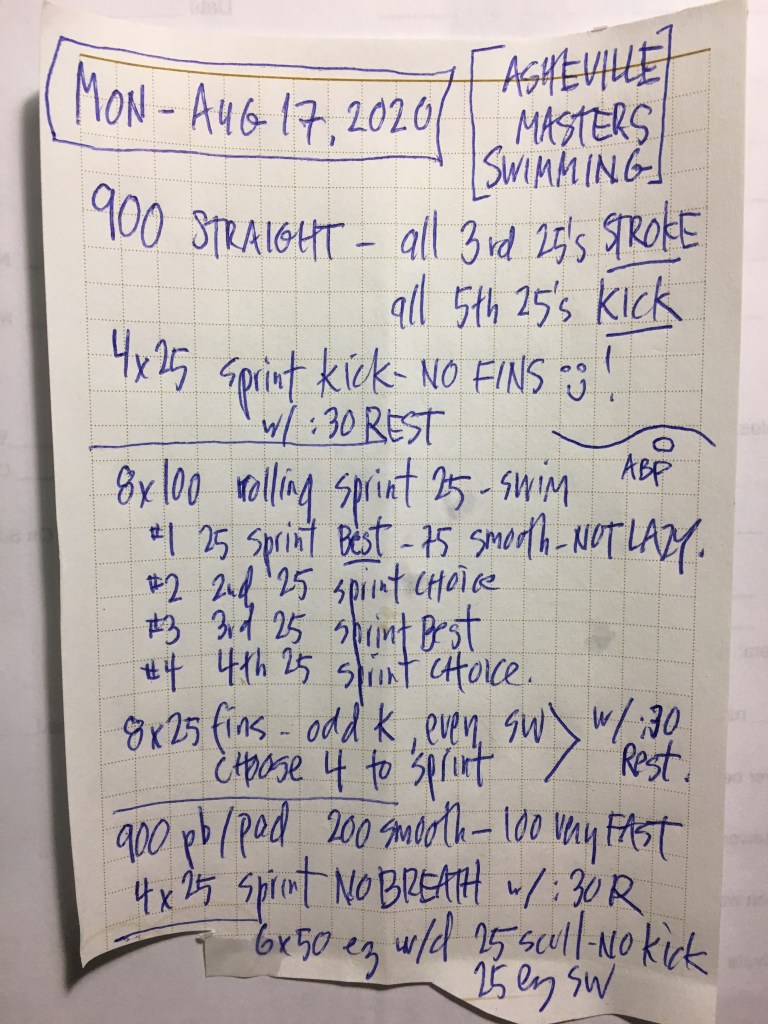 MON - AUG 17, 2020
[ASHEVILLE
MASTERS
SWIMMING]
900 STRAIGHT - all 3rd 25's STROKE
all 5th 25's KICK
4x25 sprint kick - NO FINS !
w/ :30 REST
ABP
8x100 rolling sprint 25 - swim
#1 25 sprint Best - 75 smooth - NOT LAZY.
#2 2nd 25 sprint CHOICE
#3 3rd 25 sprint Best
#4 4th 25 sprint CHOICE.
8x25 fins - odd K, even SW > w/ :30
CHOOSE 4 to sprint Rest.
900 pb/pad 200 smooth - 100 very FAST
4x25 sprint NO BREATH w/ :30 R
6x50 ez w/d 25 scull - NO kick
25 ez SW